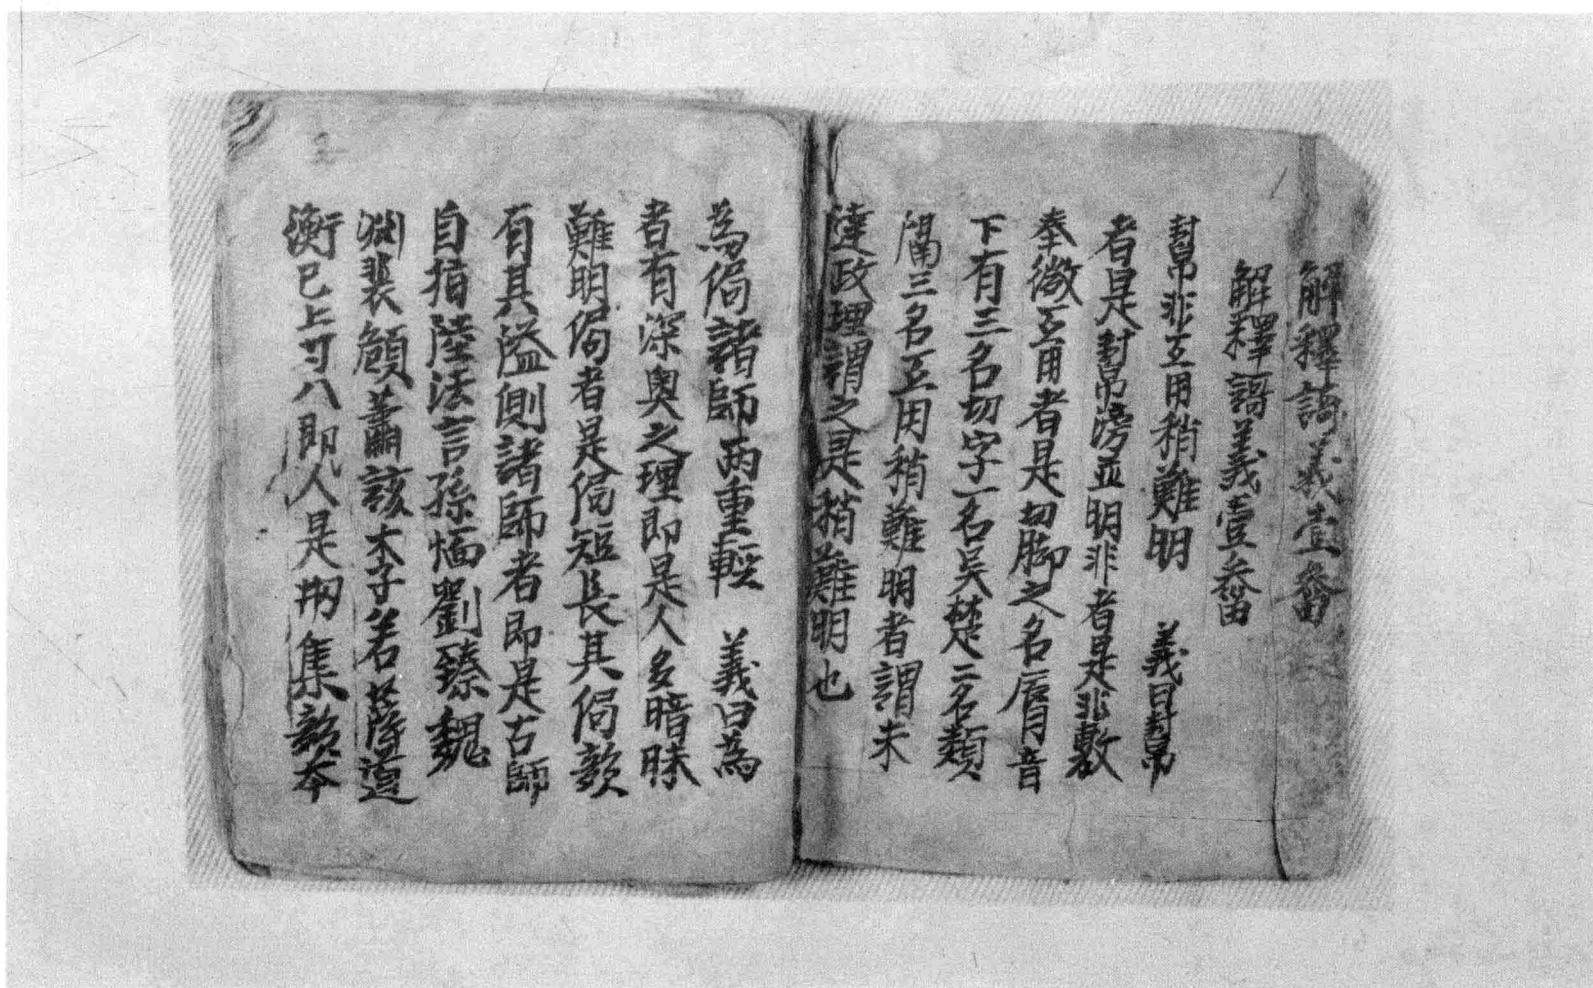 解釋謌義壹畨
解釋謌義壹畨
幫非互用稍難明　義曰幫
者是幫滂並明非者是非敷
奉微互用者是切脚之名脣音
下有三名切字一名吴楚二名類
隔三名互用稍難明者謂未
達政理謂之是稍難明也
為侷諸師兩重輕　義曰為
者有深奥之理即是人多暗昧
難明侷者是侷短長其侷韻
有其隘側諸師者即是古師
自指陸法言孫愐劉臻魏
淵裴顔蕭該李若薛道
衡已上八人是刱集韻本